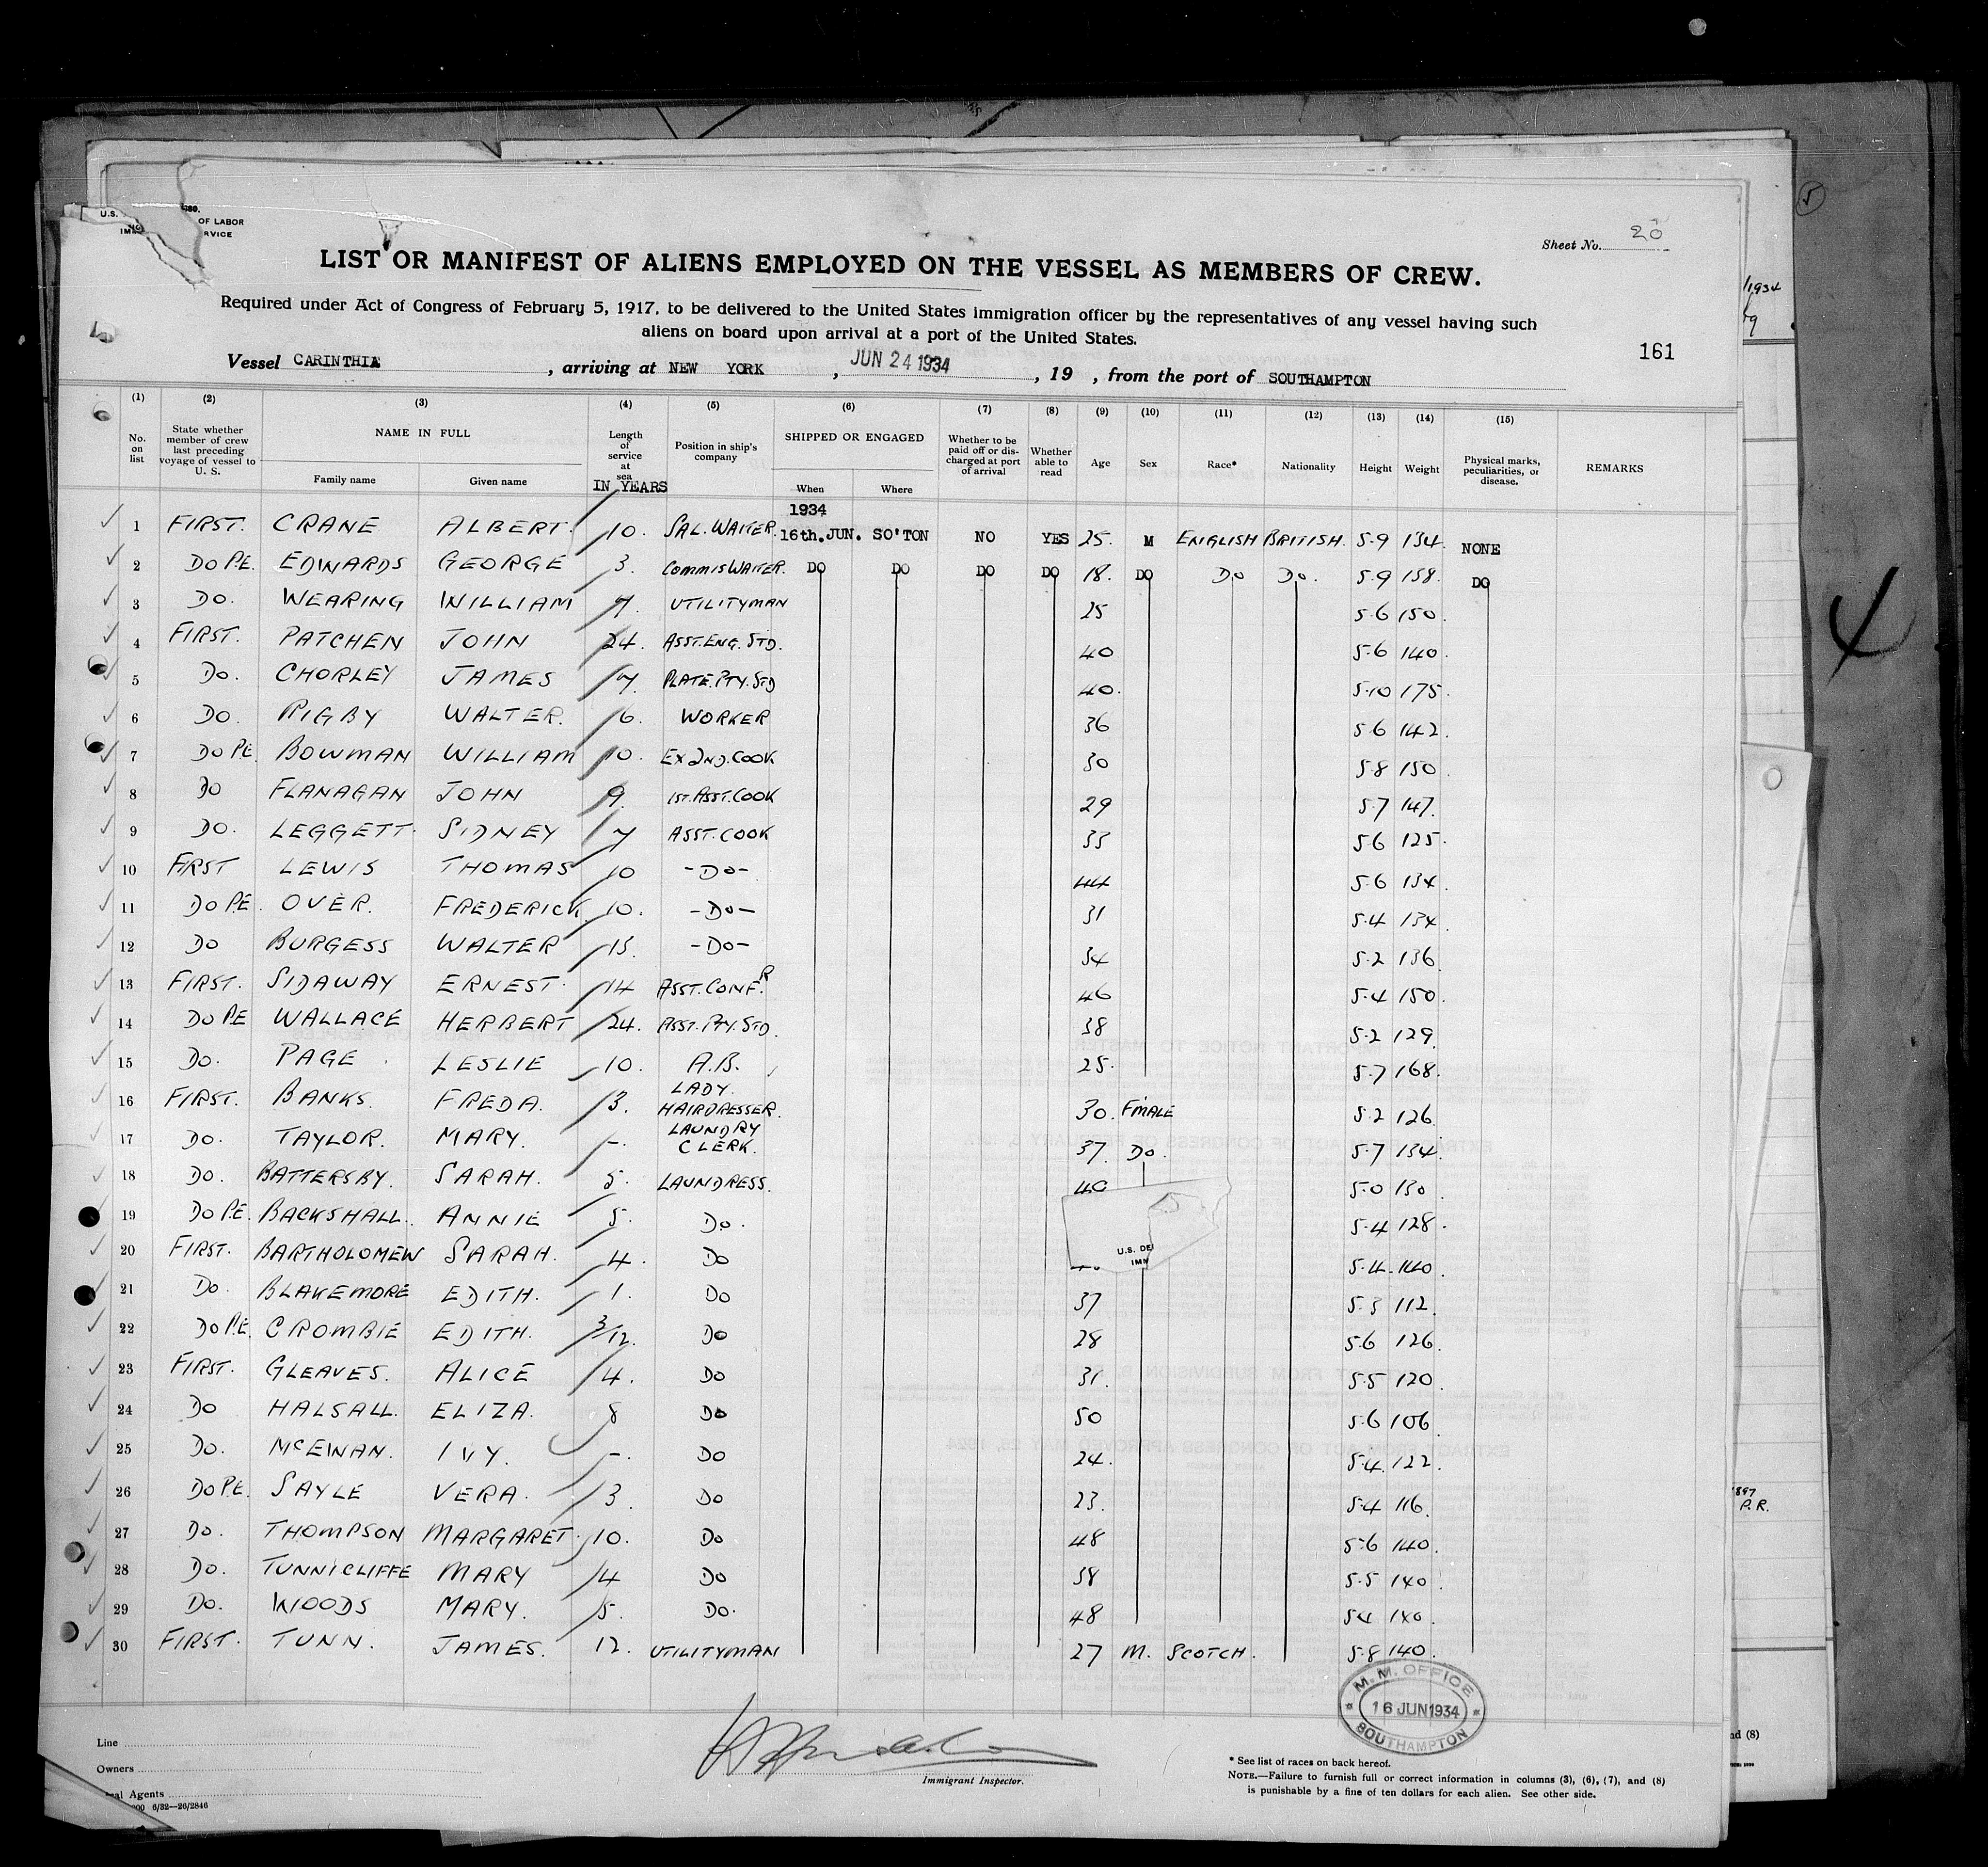 U.S.
OF LABOR
RVICE
Sheet No. 20
LIST OR MANIFEST OF ALIENS EMPLOYED ON THE VESSEL AS MEMBERS OF CREW.
Required under Act of Congress of February 5, 1917, to be delivered to the United States immigration officer by the representatives of any vessel having such
aliens on board upon arrival at a port of the United States.
161
Vessel CARINTHIA , arriving at NEW YORK , JUN 24 1934 , 19 , from the port of SOUTHAMPTON
(1) (2) (3) (4) (5) (6) (7) (8) (9) (10) (11) (12) (13) (14) (15)
No. on list State whether member of crew last preceding voyage of vessel to U. S. NAME IN FULL Length of service at sea Position in ship's company SHIPPED OR ENGAGED Whether to be paid off or discharged at port of arrival Whether able to read Age Sex Race* Nationality Height Weight Physical marks, peculiarities, or disease. REMARKS
Family name Given name IN YEARS When Where
1934
1 FIRST. CRANE ALBERT. 10. SAL. WAITER. 16th.JUN. SO'TON NO YES 25. M ENGLISH BRITISH. 5.9 134. NONE
2 DO P.E. EDWARDS GEORGE 3. COMMIS WAITER. DO DO DO DO 18. DO DO DO. 5.9 138. DO
3 DO. WEARING WILLIAM 7. UTILITYMAN 25 5.6 150.
4 FIRST. PATCHEN JOHN 24. ASST. ENG. STD. 40 5.6 140.
5 DO. CHORLEY JAMES 7. PLATE. PTY. STD 40. 5.10 175.
6 DO. RIGBY WALTER. 6. WORKER 36 5.6 142.
7 DO P.E. BOWMAN WILLIAM 10. EX 2ND. COOK 30 5.8 150.
8 DO FLANAGAN JOHN 9. 1ST. ASST. COOK 29 5.7 147.
9 DO. LEGGETT. SIDNEY 7 ASST. COOK 33 5.6 125.
10 FIRST LEWIS THOMAS 10 -DO- 44 5.6 134.
11 DO P.E. OVER. FREDERICK. 10. -DO- 31 5.4 134.
12 DO BURGESS WALTER 13. -DO- 34 5.2 136.
13 FIRST. SIDAWAY ERNEST. 14 ASST. CONF.R 46 5.4 150.
14 DO P.E WALLACE HERBERT 24. ASST. PTY. STD. 38 5.2 129.
15 DO. PAGE LESLIE 10. A.B. 25. 5.7 168.
16 FIRST. BANKS. FREDA. 3. LADY. HAIRDRESSER. 30. FMALE 5.2 126.
17 DO. TAYLOR. MARY. -. LAUNDRY CLERK. 37. DO. 5.7 134.
18 DO. BATTERSBY. SARAH. 5. LAUNDRESS. 40 5.0 130.
19 DO P.E. BACKSHALL. ANNIE 5. DO. 5.4 128.
20 FIRST. BARTHOLOMEW SARAH. 4. DO 5.4. 140.
U.S. DE
IMM
21 DO. BLAKEMORE EDITH. 1. DO 37 5.3 112.
22 DO P.E. CROMBIE EDITH. 3/12. DO 28 5.6 126.
23 FIRST. GLEAVES. ALICE 4. DO 31. 5.5 120.
24 DO HALSALL. ELIZA. 8 DO 50 5.6 106.
25 DO. McEWAN. IVY. -. DO 24. 5.4. 122.
26 DO P.E. SAYLE VERA. 3. DO 23. 5.4 116.
27 DO. THOMPSON MARGARET. 10. DO 48 5.6 140.
28 DO. TUNNICLIFFE MARY 4 DO 38 5.5 140.
29 DO. WOODS MARY. 5. DO. 48 5.4 140.
30 FIRST. TUNN. JAMES. 12. UTILITYMAN 27 M. SCOTCH. 5.8 140.
M. M. OFFICE
16 JUN 1934
SOUTHAMPTON
Line
Owners
al Agents
000 6/32—26/2846
Immigrant Inspector.
* See list of races on back hereof.
NOTE.—Failure to furnish full or correct information in columns (3), (6), (7), and (8)
is punishable by a fine of ten dollars for each alien. See other side.
1934
P.R.
nd (8)